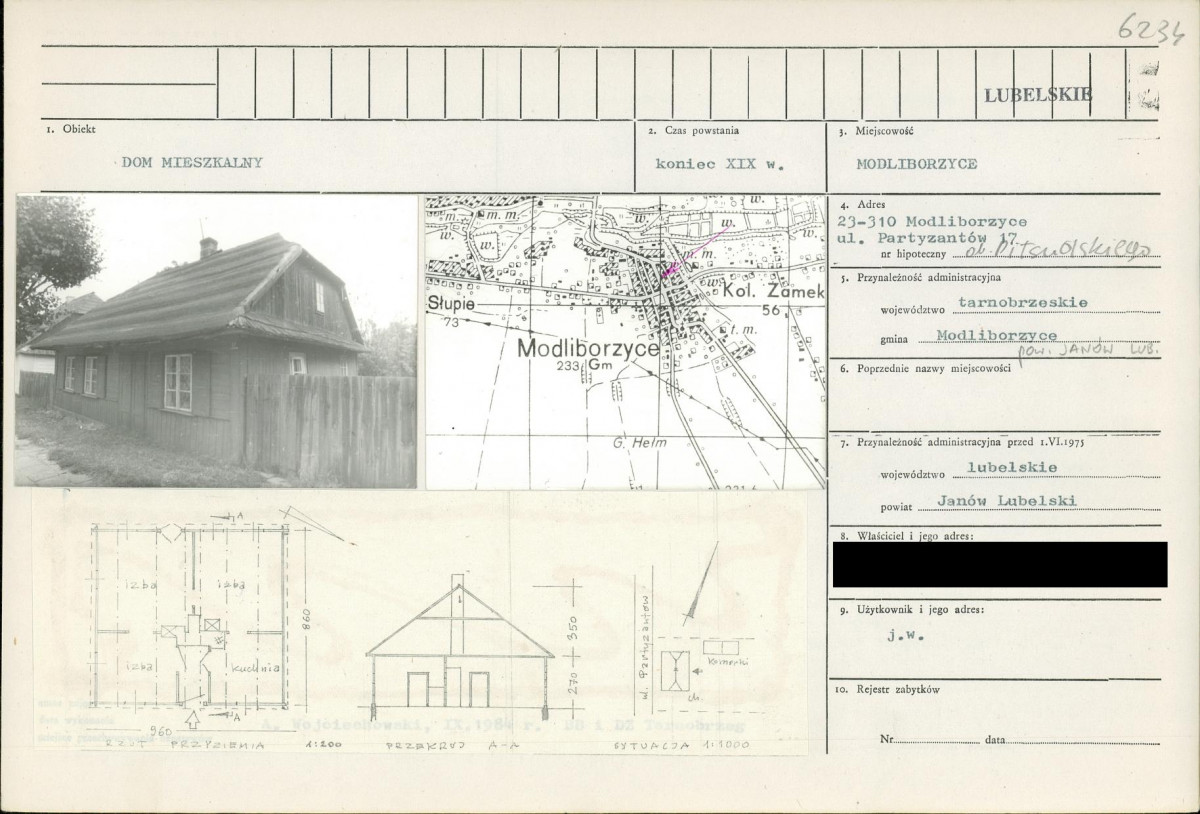 6234
LUBELSKIE
1. Obiekt
DOM MIESZKALNY
2. Czas powstania
koniec XIX w.
3. Miejscowość
MODLIBORZYCE
4. Adres
23-310 Modliborzyce
ul. Partyzantów 17
nr hipoteczny
5. Przynależność administracyjna
województwo tarnobrzeskie
gmina Modliborzyce
POW. JANÓW LUB.
6. Poprzednie nazwy miejscowości
7. Przynależność administracyjna przed 1.VI.1975
województwo lubelskie
powiat Janów Lubelski
8. Właściciel i jego adres:
9. Użytkownik i jego adres:
j.w.
10. Rejestr zabytków
Nr data
m. m.
w.
w.
w.
w.
w.
w.
m. m.
w.
Słupie
73
Kol. Zamek
56
t. m.
Modliborzyce
233 Gm
G. Hełm
A
izba
izba
izba
kuchnia
860
A
960
RZUT PRZYZIEMIA 1:200
350
270
PRZEKRÓJ A-A
ul. Partyzantów
Komórki
ch.
SYTUACJA 1:1000
A. Wojciechowski, IX.1984 r. DD i DZ Tarnobrzeg